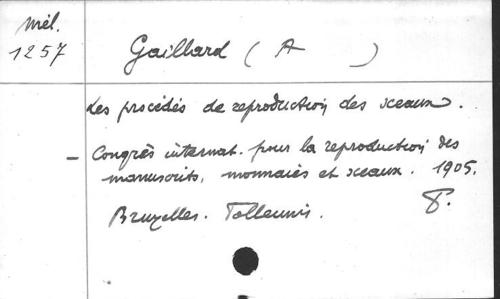 Mél.
1257
Gaillard (A )
Les procédés de reproduction des sceaux.
- Congrès internat. pour la reproduction des
manuscrits, monnaies et sceaux. 1905.
Bruxelles.